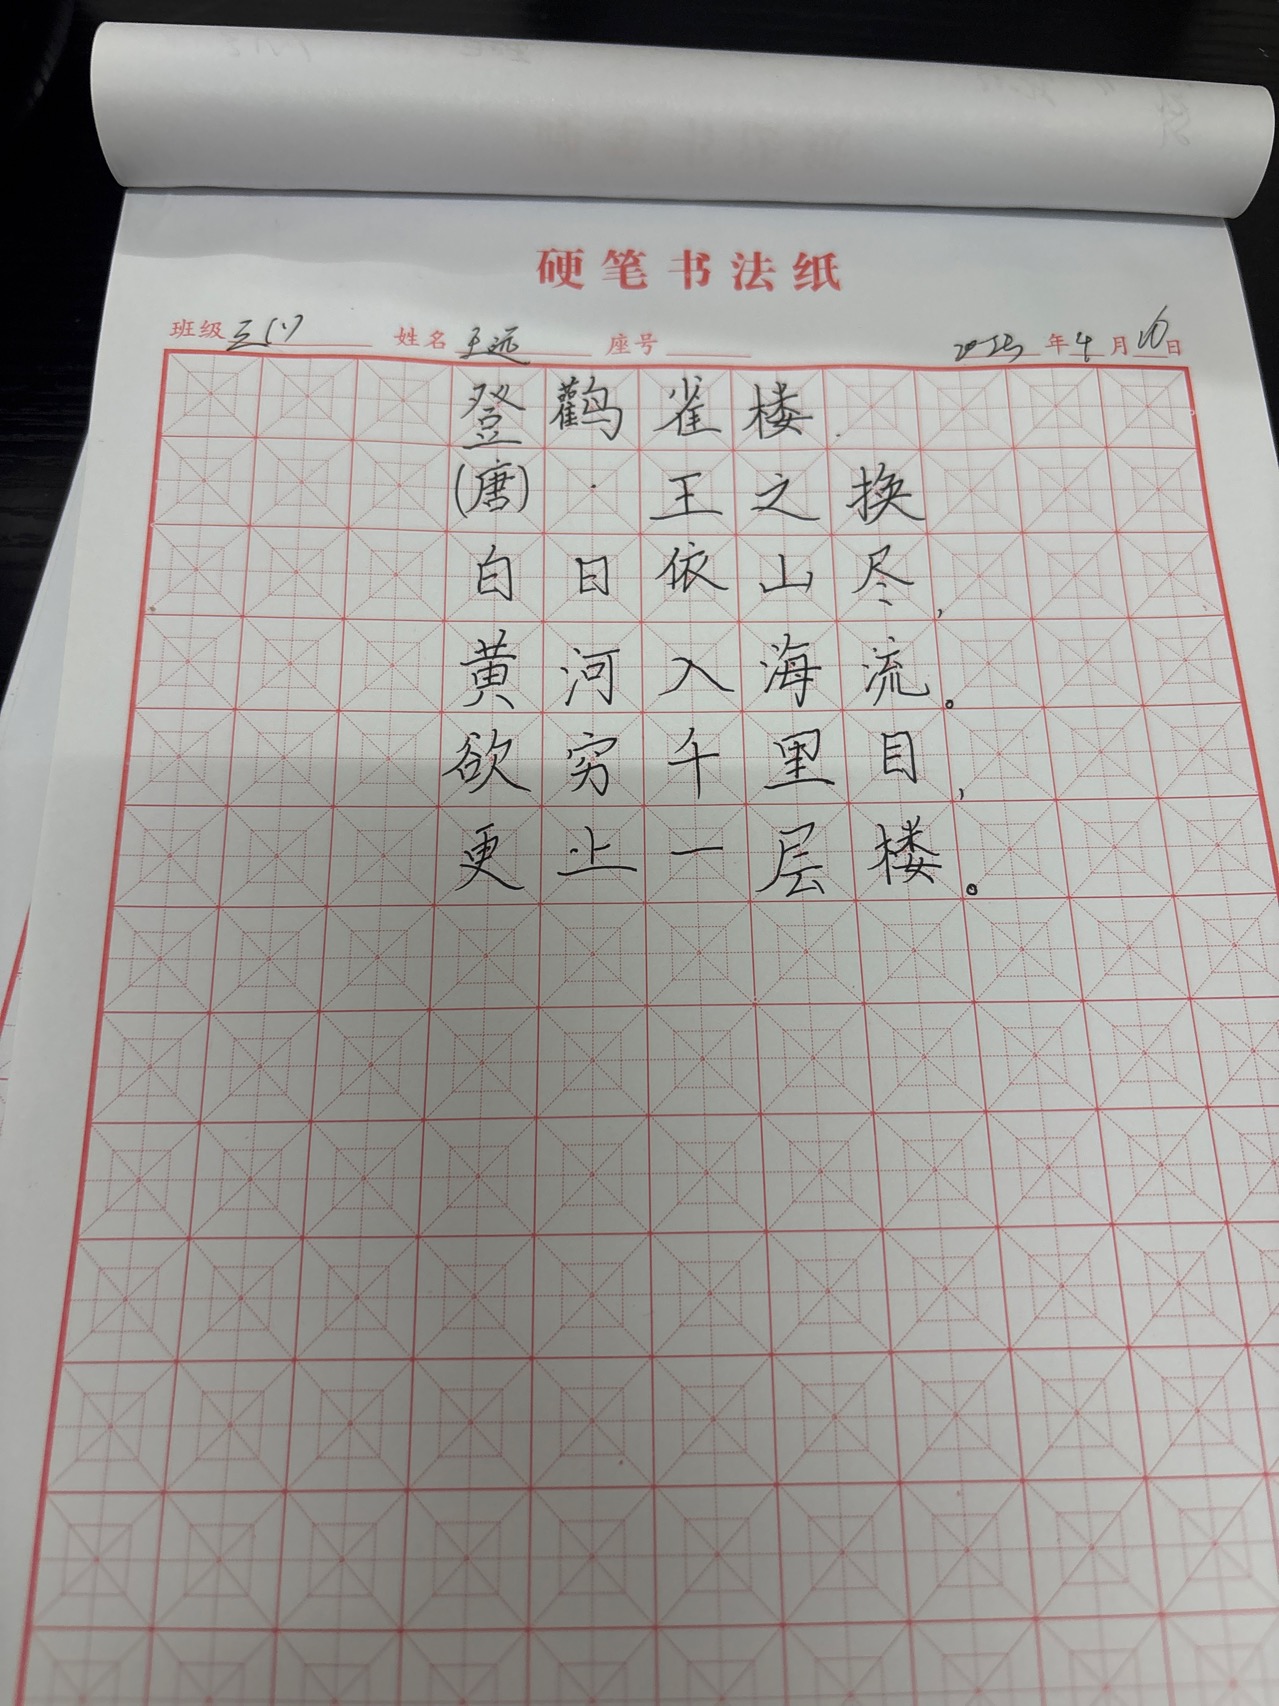 硬笔书法纸
班级 三(1) 姓名 王远 座号 2025年4月10日
登鹳雀楼
(唐)·王之换
白日依山尽,
黄河入海流。
欲穷千里目,
更上一层楼。